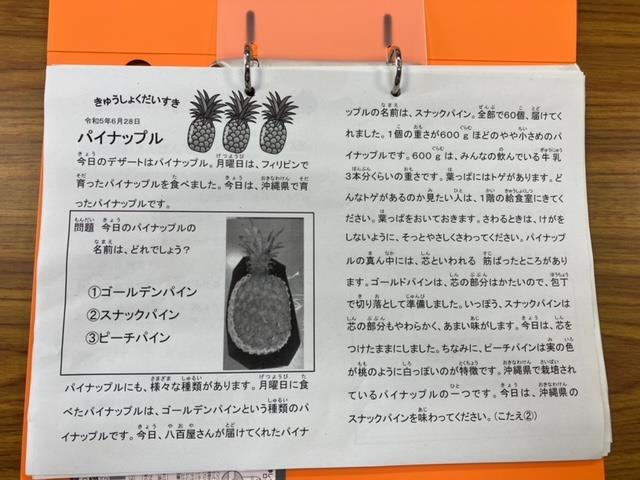 きゅうしょくだいすき
令和5年6月28日
パイナップル
今日のデザートはパイナップル。月曜日は、フィリピンで
育ったパイナップルを食べました。今日は、沖縄県で育
ったパイナップルです。
問題 今日のパイナップルの
名前は、どれでしょう?
①ゴールデンパイン
②スナックパイン
③ピーチパイン
パイナップルにも、様々な種類があります。月曜日に食
べたパイナップルは、ゴールデンパインという種類のパ
イナップルです。今日、八百屋さんが届けてくれたパイナ
ップルの名前は、スナックパイン。全部で60個、届けてく
れました。1個の重さが600gほどのやや小さめのパ
イナップルです。600gは、みんなの飲んでいる牛乳
3本分くらいの重さです。葉っぱにはトゲがあります。ど
んなトゲがあるのか見たい人は、1階の給食室にきてく
ださい。葉っぱをおいておきます。さわるときは、けがを
しないように、そっとやさしくさわってください。パイナップ
ルの真ん中には、芯といわれる 筋ばったところがあり
ます。ゴールドパインは、芯の部分はかたいので、包丁
で切り落として準備しました。いっぽう、スナックパインは
芯の部分もやわらかく、あまい味がします。今日は、芯を
つけたままにしました。ちなみに、ピーチパインは実の色
が桃のように白っぽいのが特徴です。沖縄県で栽培され
ているパイナップルの一つです。今日は、沖縄県の
スナックパインを味わってください。(こたえ②)